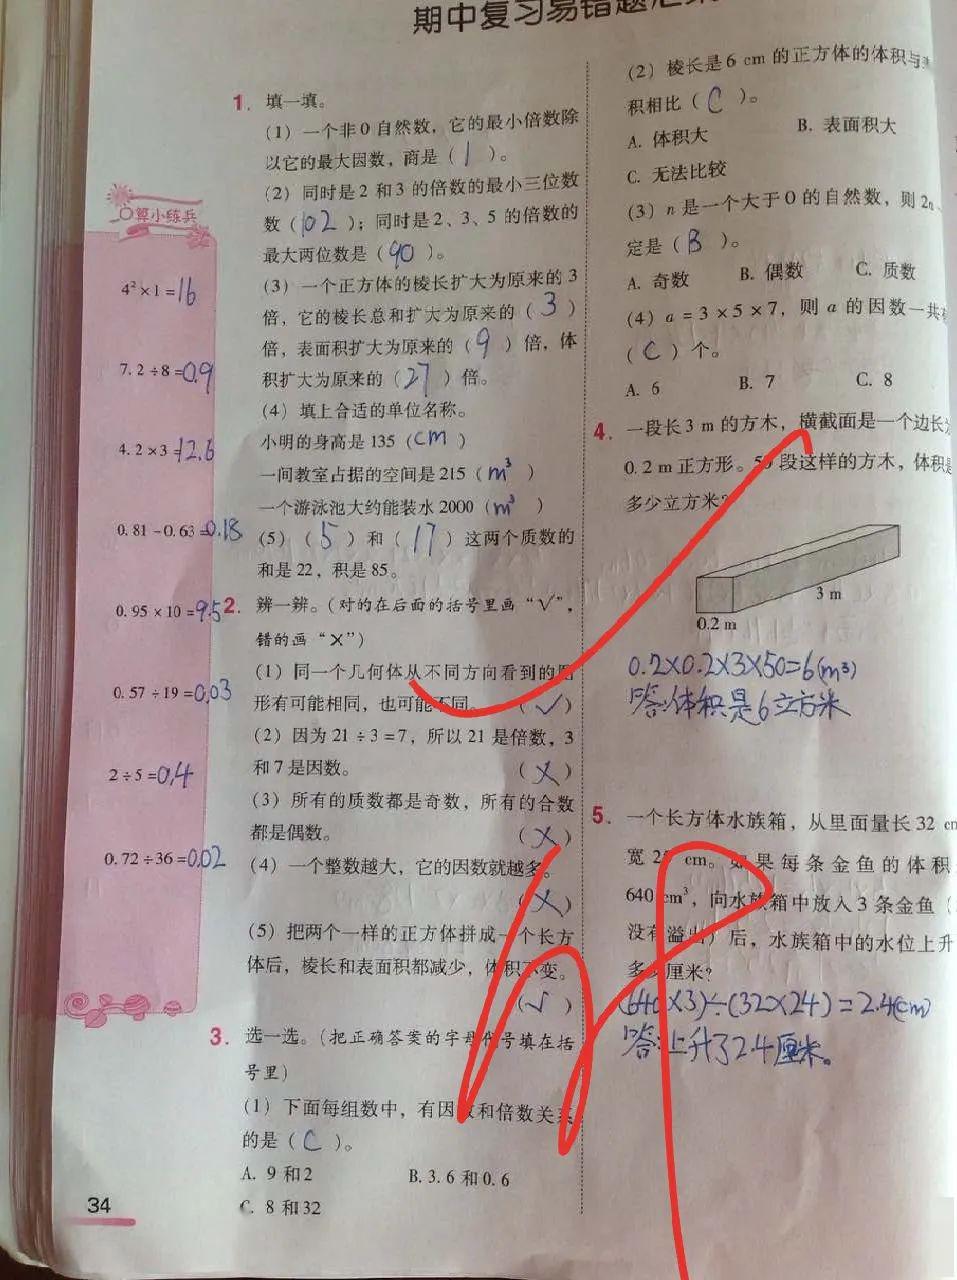 期中复习易错题汇集
口算小练兵
4²×1=16
7.2÷8=0.9
4.2×3=12.6
0.81-0.63=0.18
0.95×10=9.5
0.57÷19=0.03
2÷5=0.4
0.72÷36=0.02
34
1. 填一填。
(1) 一个非0自然数，它的最小倍数除
以它的最大因数，商是（1）。
(2) 同时是2和3的倍数的最小三位数
数（102）；同时是2、3、5的倍数的
最大两位数是（90）。
(3) 一个正方体的棱长扩大为原来的3
倍，它的棱长总和扩大为原来的（3）
倍，表面积扩大为原来的（9）倍，体
积扩大为原来的（27）倍。
(4) 填上合适的单位名称。
小明的身高是135（cm）
一间教室占据的空间是215（m³）
一个游泳池大约能装水2000（m³）
(5)（5）和（17）这两个质数的
和是22，积是85。
2. 辨一辨。（对的在后面的括号里画“√”，
错的画“×”）
(1) 同一个几何体从不同方向看到的图
形有可能相同，也可能不同。（√）
(2) 因为21÷3=7，所以21是倍数，3
和7是因数。（×）
(3) 所有的质数都是奇数，所有的合数
都是偶数。（×）
(4) 一个整数越大，它的因数就越多。
（×）
(5) 把两个一样的正方体拼成一个长方
体后，棱长和表面积都减少，体积不变。
（√）
3. 选一选。（把正确答案的字母代号填在括
号里）
(1) 下面每组数中，有因数和倍数关系
的是（C）。
A. 9和2 B. 3.6和0.6
C. 8和32
(2) 棱长是6 cm的正方体的体积与
积相比（C）。
A. 体积大 B. 表面积大
C. 无法比较
(3) n是一个大于0的自然数，则2n
定是（B）。
A. 奇数 B. 偶数 C. 质数
(4) a=3×5×7，则a的因数一共有
（C）个。
A. 6 B. 7 C. 8
4. 一段长3 m的方木，横截面是一个边长
0.2 m正方形。50段这样的方木，体积是
多少立方米？
3 m
0.2 m
0.2×0.2×3×50=6(m³)
答:体积是6立方米
5. 一个长方体水族箱，从里面量长32 cm
宽 cm。如果每条金鱼的体积
640 cm³，向水族箱中放入3条金鱼（
没有溢出）后，水族箱中的水位上升
多少厘米？
(640×3)÷(32×24)=2.4(cm)
答:上升了2.4厘米。